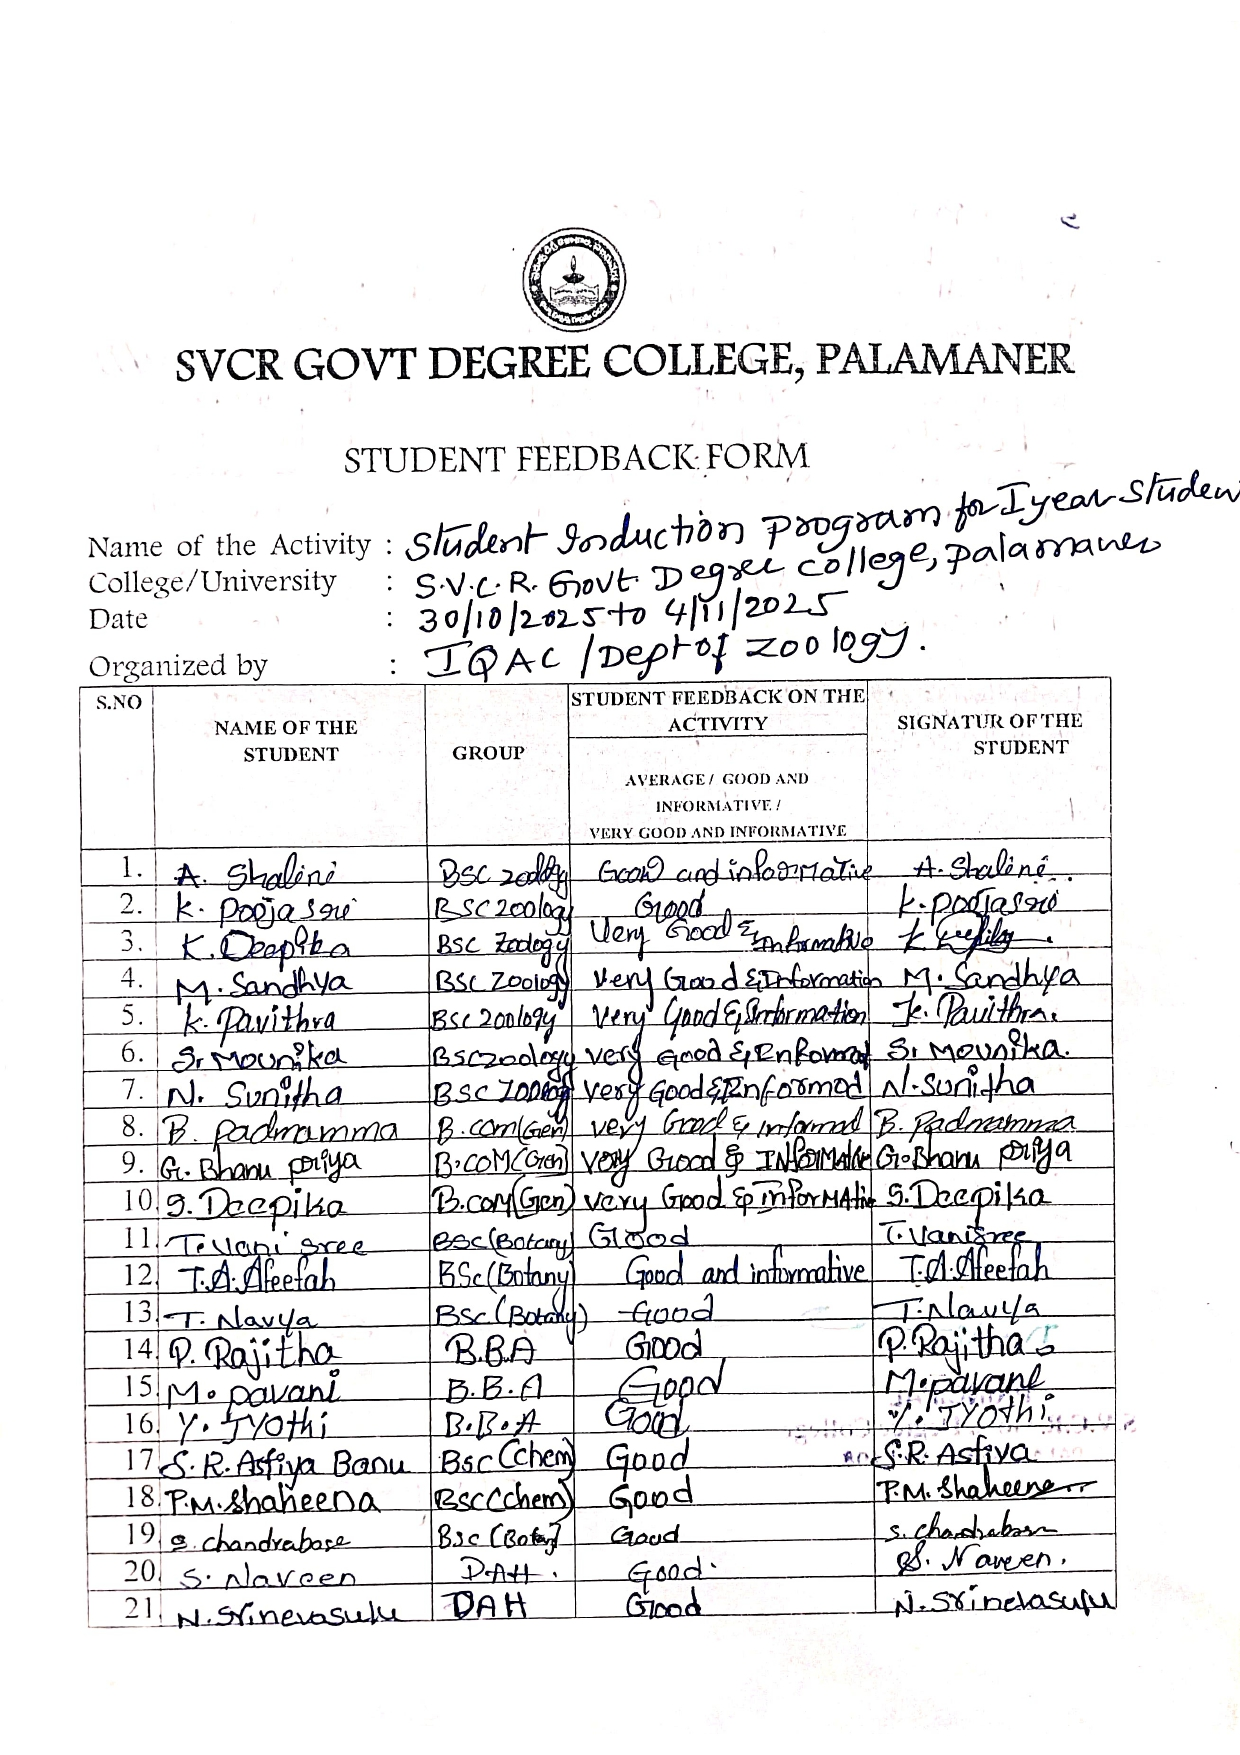 SVCR GOVT DEGREE COLLEGE, PALAMANER
STUDENT FEEDBACK FORM
Name of the Activity : Student Induction Program for I year Studen
College/University : S.V.C.R. Govt Degree college, Palamaner
Date : 30/10/2025 to 4/11/2025
Organized by : IQAC / Dept of Zoology.
S.NO NAME OF THE STUDENT GROUP STUDENT FEEDBACK ON THE ACTIVITY SIGNATUR OF THE STUDENT
AVERAGE / GOOD AND INFORMATIVE / VERY GOOD AND INFORMATIVE
1. A. Shalini BSC zoology Good and informative A. Shalini
2. K. Poojasri BSC zoology Good K. Poojasri
3. K. Deepika BSC Zoology Very Good & Informative K
4. M. Sandhya BSC Zoology Very Good & Information M. Sandhya
5. K. Pavithra BSC zoology Very Good & Information K. Pavithra.
6. S. Mounika BSC zoology very Good & Enformat S. Mounika.
7. N. Sunitha BSC Zoology very Good & Enformed N. Sunitha
8. B. Padmamma B.com(Gen) very Good & informal B. Padmamma
9. G. Bhanu priya B.COM(Gen) Very Good & INFORMATive G. Bhanu priya
10. S. Deepika B.com(Gen) very Good & InforMAtive S. Deepika
11. T. Vani sree BSC(Botany) Good T. Vanisree
12. T.A. Afeefah BSc(Botany) Good and informative T.A. Afeefah
13. T. Navya BSC(Botany) Good T. Navya
14. P. Rajitha B.B.A Good P. Rajitha
15. M. pavani B.B.A Good M. pavani
16. Y. JYothi B.B.A Good Y. JYothi
17. S.R. Asfiya Banu BSC (Chem) Good S.R. Asfiya
18. P.M. Shaheena BSC(Chem) Good P.M. Shaheena
19. S. chandrabose BSC (Botany) Good S. chandrabose
20. S. Naveen DAH. Good. S. Naveen.
21. N. Srinevasulu DAH Good N. Srinevasulu